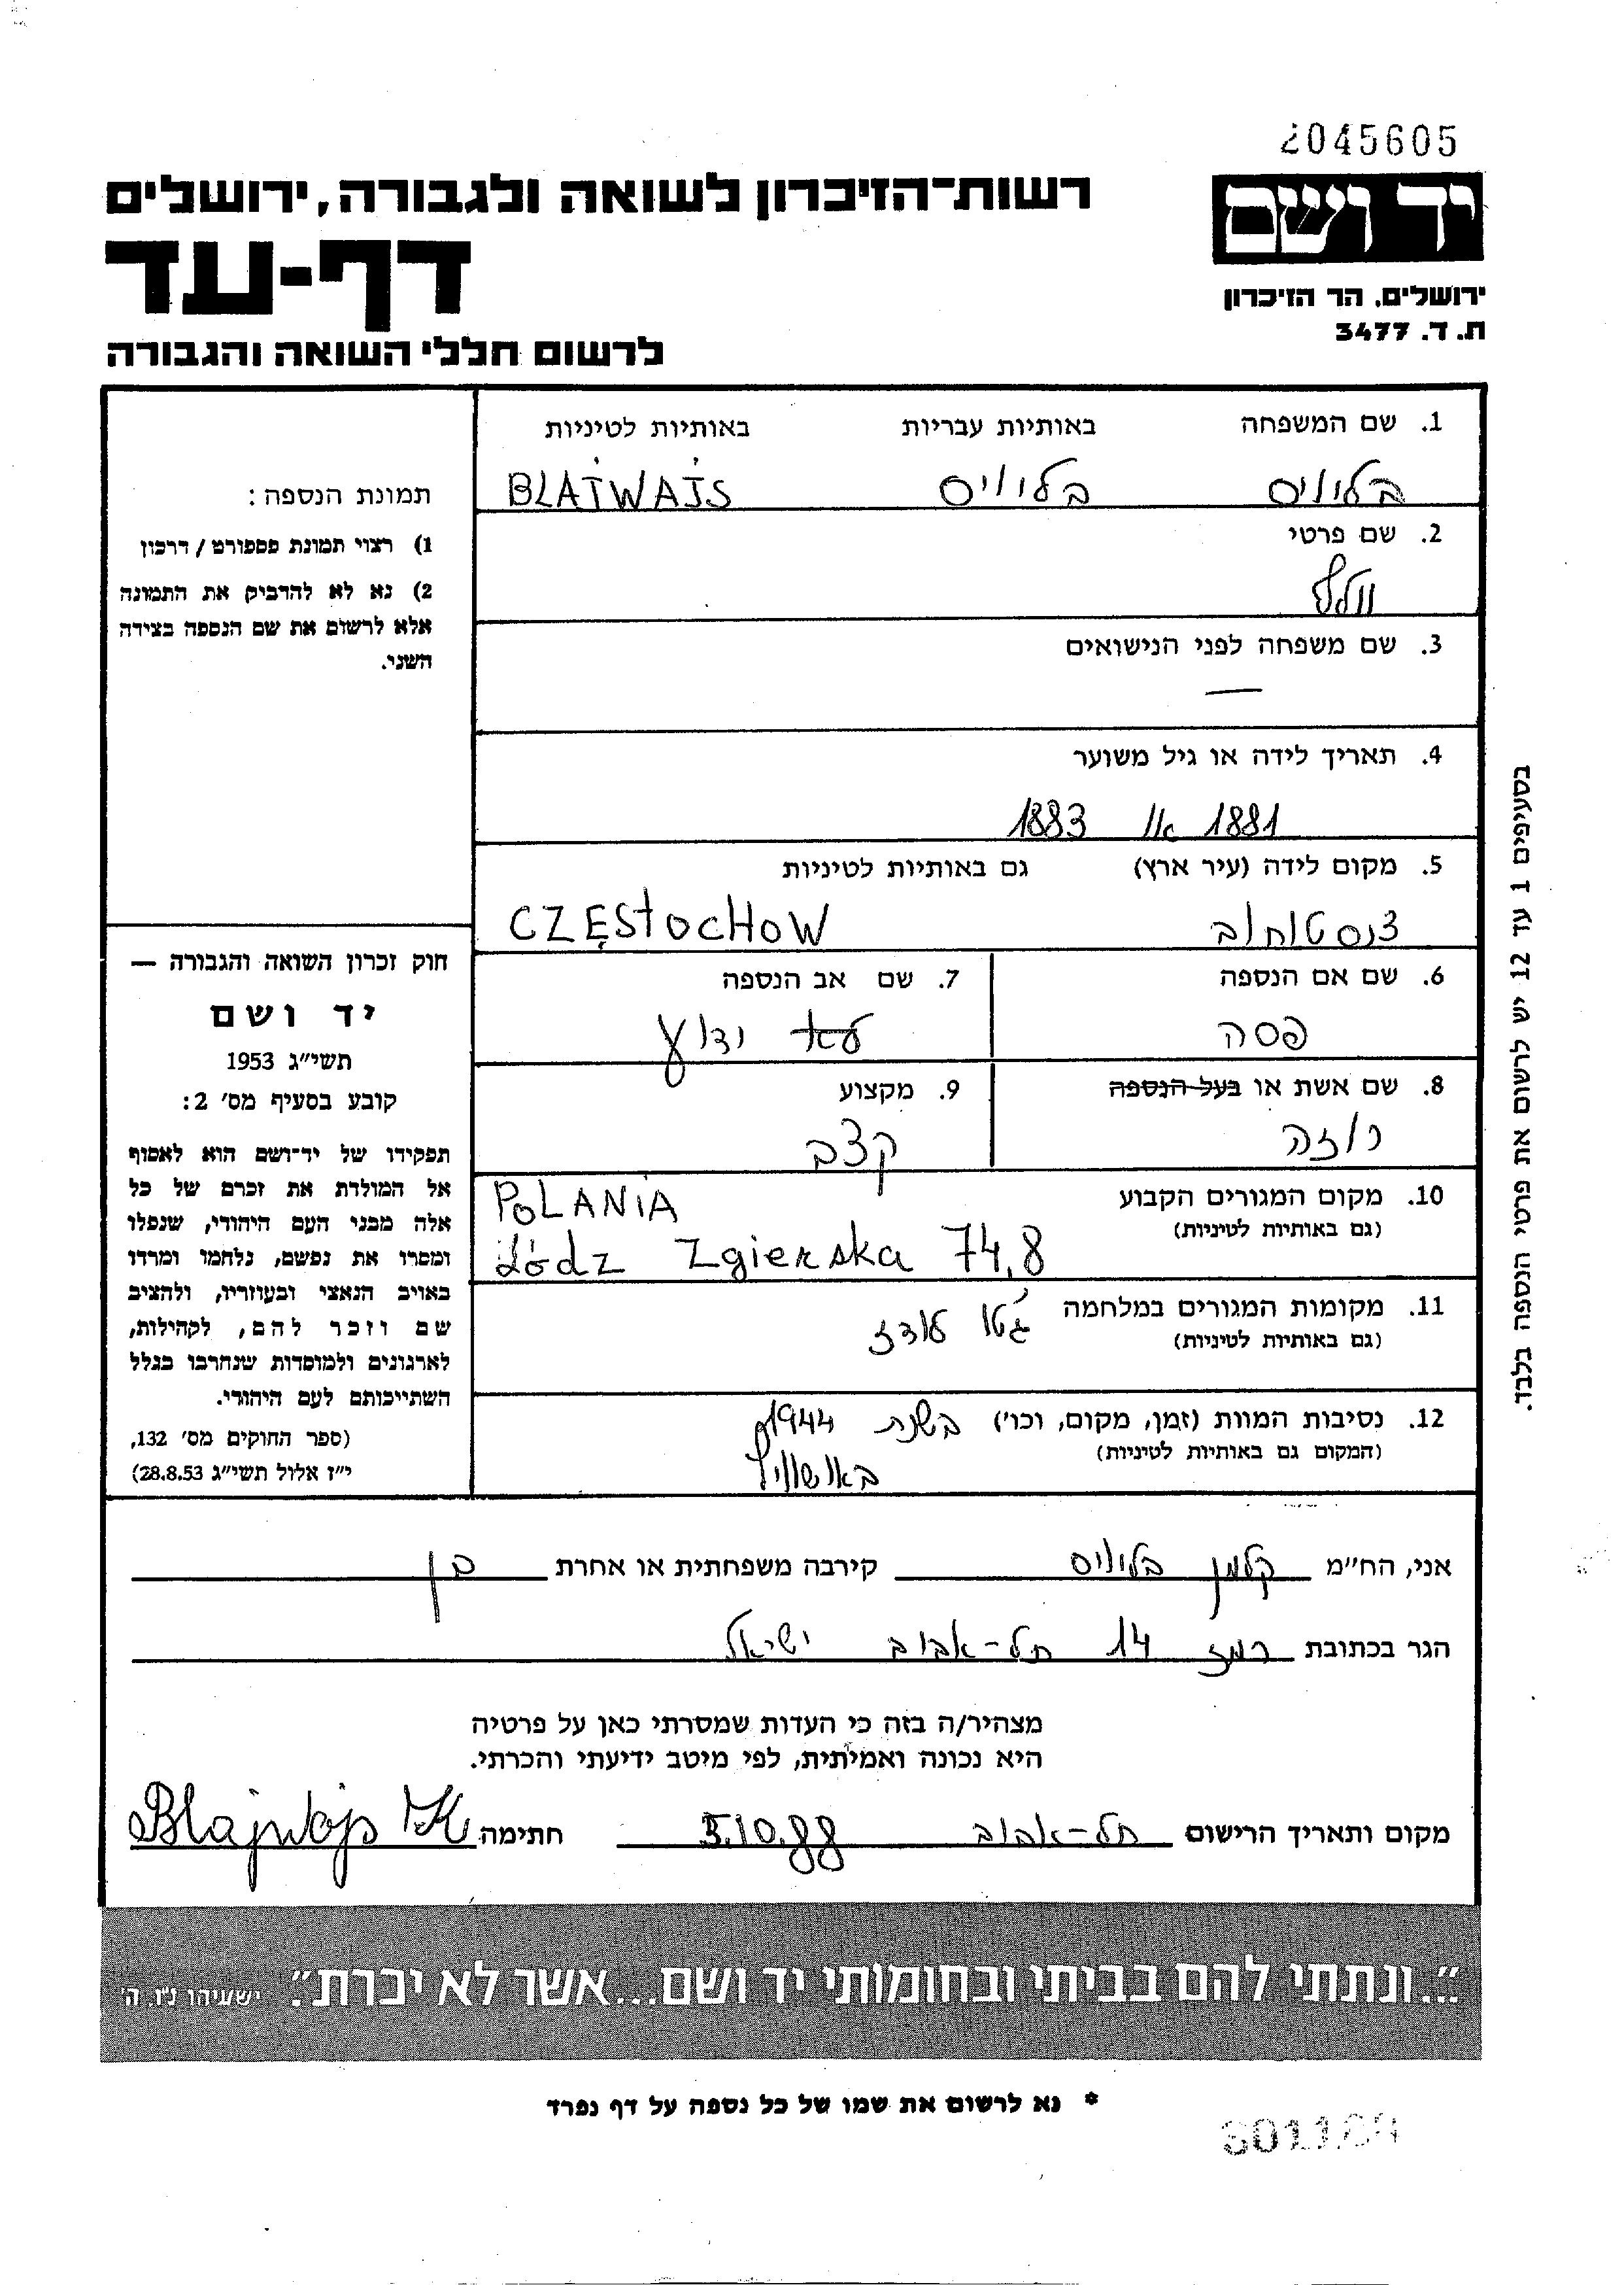 2045605
יד ושם
ירושלים, הר הזיכרון
ת. ד. 3477
רשות־הזיכרון לשואה ולגבורה, ירושלים
דף-עד
לרשום חללי השואה והגבורה
1. שם המשפחה באותיות עבריות באותיות לטיניות
בלויים בלויים BLAJWAJS
2. שם פרטי
וולף
3. שם משפחה לפני הנישואים
—
4. תאריך לידה או גיל משוער
1881 או 1883
5. מקום לידה (עיר ארץ) גם באותיות לטיניות
צנסטוחוב CZĘStOCHOW
6. שם אם הנספה
פסה
7. שם אב הנספה
לא ידוע
8. שם אשת או בעל הנספה
רוזה
9. מקצוע
קצב
10. מקום המגורים הקבוע
(גם באותיות לטיניות)
POLANiA
Łódz Zgierska 74,8
11. מקומות המגורים במלחמה
(גם באותיות לטיניות)
גטו לודז
12. נסיבות המוות (זמן, מקום, וכו') בשנת 1944
(המקום גם באותיות לטיניות)
באושוויץ
תמונת הנספה:
1) רצוי תמונת פספורט / דרכון
2) נא לא להדביק את התמונה
אלא לרשום את שם הנספה בצידה
השני.
חוק זכרון השואה והגבורה —
יד ושם
תשי״ג 1953
קובע בסעיף מס׳ 2:
תפקידו של יד־ושם הוא לאסוף
אל המולדת את זכרם של כל
אלה מבני העם היהודי, שנפלו
ומסרו את נפשם, נלחמו ומרדו
באויב הנאצי ובעוזריו, ולהציב
שם וזכר להם, לקהילות,
לארגונים ולמוסדות שנחרבו בגלל
השתייכותם לעם היהודי.
(ספר החוקים מס׳ 132,
י״ז אלול תשי״ג 28.8.53)
בסעיפים 1 עד 12 יש לרשום את פרטי הנספה בלבד.
אני, הח״מ קלמן בלויים קירבה משפחתית או אחרת בן
הגר בכתובת רמז 14 תל-אביב ישראל
מצהיר/ה בזה כי העדות שמסרתי כאן על פרטיה
היא נכונה ואמיתית, לפי מיטב ידיעתי והכרתי.
מקום ותאריך הרישום תל-אביב 5.10.88 חתימה Blajwajs K
״...ונתתי להם בביתי ובחומותי יד ושם...אשר לא יכרת״. ישעיהו נ״ו, ה׳
* נא לרשום את שמו של כל נספה על דף נפרד